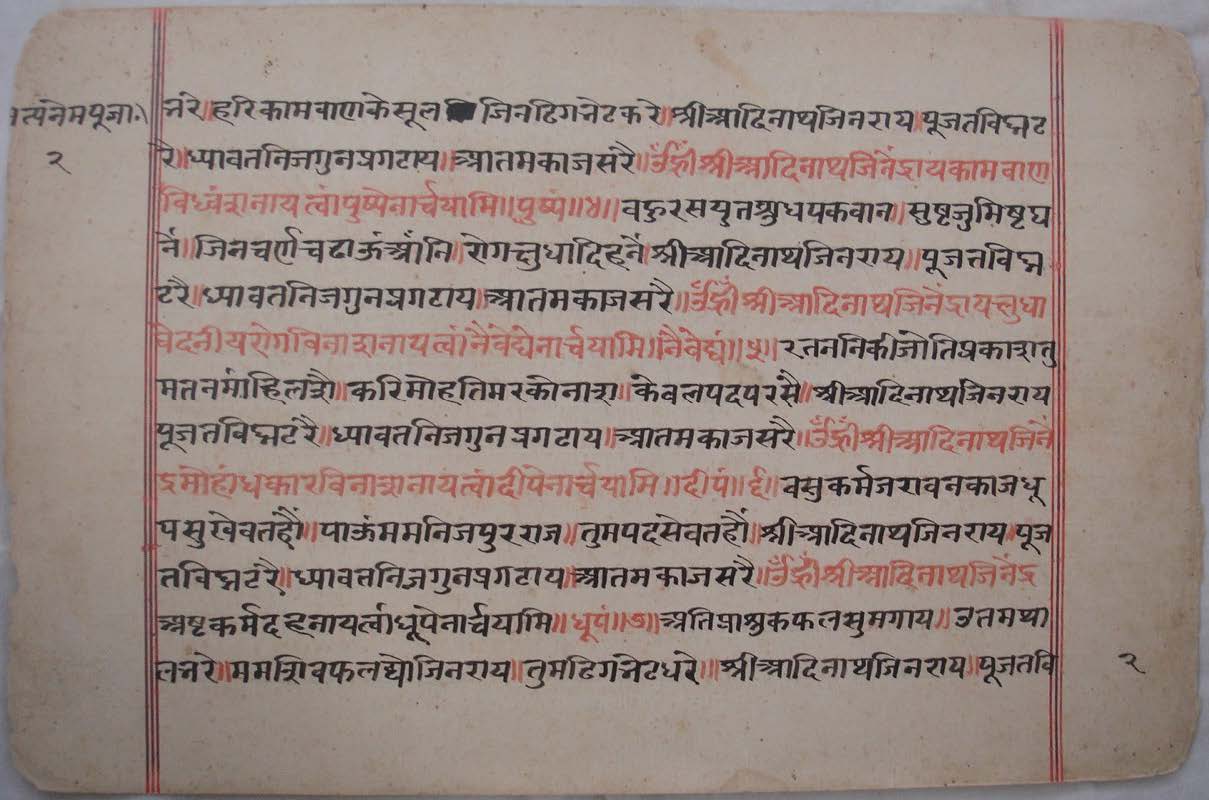 त्पनेमपूजा॥
२
नरे॥हरिकामवाणकेसूल जिनढिगनेटकरे॥श्रीआदिनाथजिनराय॥पूजतविघ्नट
रै॥ध्यावतनिजगुनप्रगटाय॥आतमकाजसरै॥उँह्रीँश्रीआदिनाथजिनेंद्रायकामवाण
विध्वंशनायत्वांपुष्पेनार्चयामि॥पुष्पं॥४॥वहुरसयुतश्रुधपकवान॥सुषृजुमिषृघ
नें॥जिनचर्णचढाऊंआंनि॥रोगक्षुधादिहनें॥श्रीआदिनाथजिनराय॥पूजतविघ्न
टरै॥ध्यावतनिजगुनप्रगटाय॥आतमकाजसरै॥उँह्रीँश्रीआदिनाथजिनेंद्रायक्षुधा
वेदनीयरोगविनाशनायत्वांनैवेद्येनार्चयामि॥नैवेद्यं॥५॥रतननिकीजोतिप्रकाशतु
मतनमांहिलशै॥करिमोहतिमरकोनाश॥केवलपदपरसै॥श्रीआदिनाथजिनराय
पूजतविघ्नटरै॥ध्यावतनिजगुनप्रगटाय॥आतमकाजसरै॥उँह्रीँश्रीआदिनाथजिनें
द्रमोहांधकारविनाशनायत्वांदीपेनार्चयामि॥दीपं॥६॥वसुकर्मजरावनकाजधू
पसुखेवतहौं॥पाऊंममनिजपुरराज॥तुमपदसेवतहौं॥श्रीआदिनाथजिनराय॥पूज
तविघ्नटरै॥ध्यावतनिजगुनप्रगटाय॥आतमकाजसरै॥उँह्रीँश्रीआदिनाथजिनेंद्र
अषृकर्मदहनायत्वांधूपेनार्चयामि॥धूपं॥७॥अतिप्राश्रुकफलसुमगाय॥उतमथा
लनरे॥ममशिवफलद्यौजिनराय॥तुमढिगनेटधरे॥श्रीआदिनाथजिनराय॥पूजतवि
२